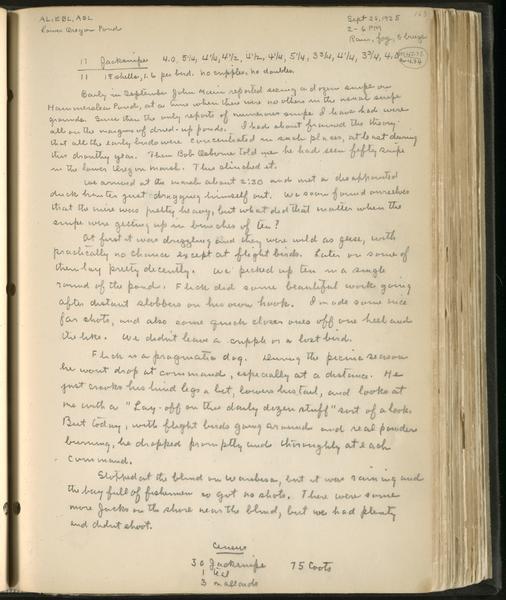 AL, EBL, ASL
Lower Oregon Pond
Sept 25, 1925
2-6 PM
Rain, fog, S breeze
163
11 Jacksnipe 4.0, 5¼, 4¼, 4½, 4½, 4¼, 5¼, 3¾, 4¼, 3¾, 4.0
11 18 shells, 1.6 per bird. no cripples, no doubles.
Early in September John Main reported seeing a dozen snipe on
Hammersley Pond, at a time when there were no others in the usual snipe
grounds. Since then the only reports of numerous snipe I have had were
all on the margins of dried-up ponds. I had about framed the theory
that all the early birds were concentrated in such places, at least during
this drouthy year. Then Bob Osborne told me he had seen fifty snipe
in the lower Oregon marsh. This clinched it.
We arrived at the marsh about 2:30 and met a disappointed
duck hunter just dragging himself out. We soon found ourselves
that the mire was pretty heavy, but what did that matter when the
snipe were getting up in bunches of ten?
At first it was drizzling and they were wild as geese, with
practically no chance except at flight birds. Later on some of
them lay pretty decently. We picked up ten in a single
round of the pond. Flick did some beautiful work going
after distant slobbers on his own hook. I made some nice
far shots, and also some quick closer ones off one heel and
the like. We didn't leave a cripple or a lost bird.
Flick is a pragmatic dog. During the picnic season
he won't drop at command, especially at a distance. He
just crooks his hind legs a bit, lowers his tail, and looks at
me with a "Lay-off on this daily dozen stuff" sort of a look.
But today, with flight birds going around and real powder
burning, he dropped promptly and thoroughly at each
command.
Stopped at the blind on Waubesa, but it was raining and
the bay full of fishermen so got no shots. There were some
more Jacks on the shore near the blind, but we had plenty
and didn't shoot.
Census
30 Jacksnipe 75 Coots
1 teal
3 mallards